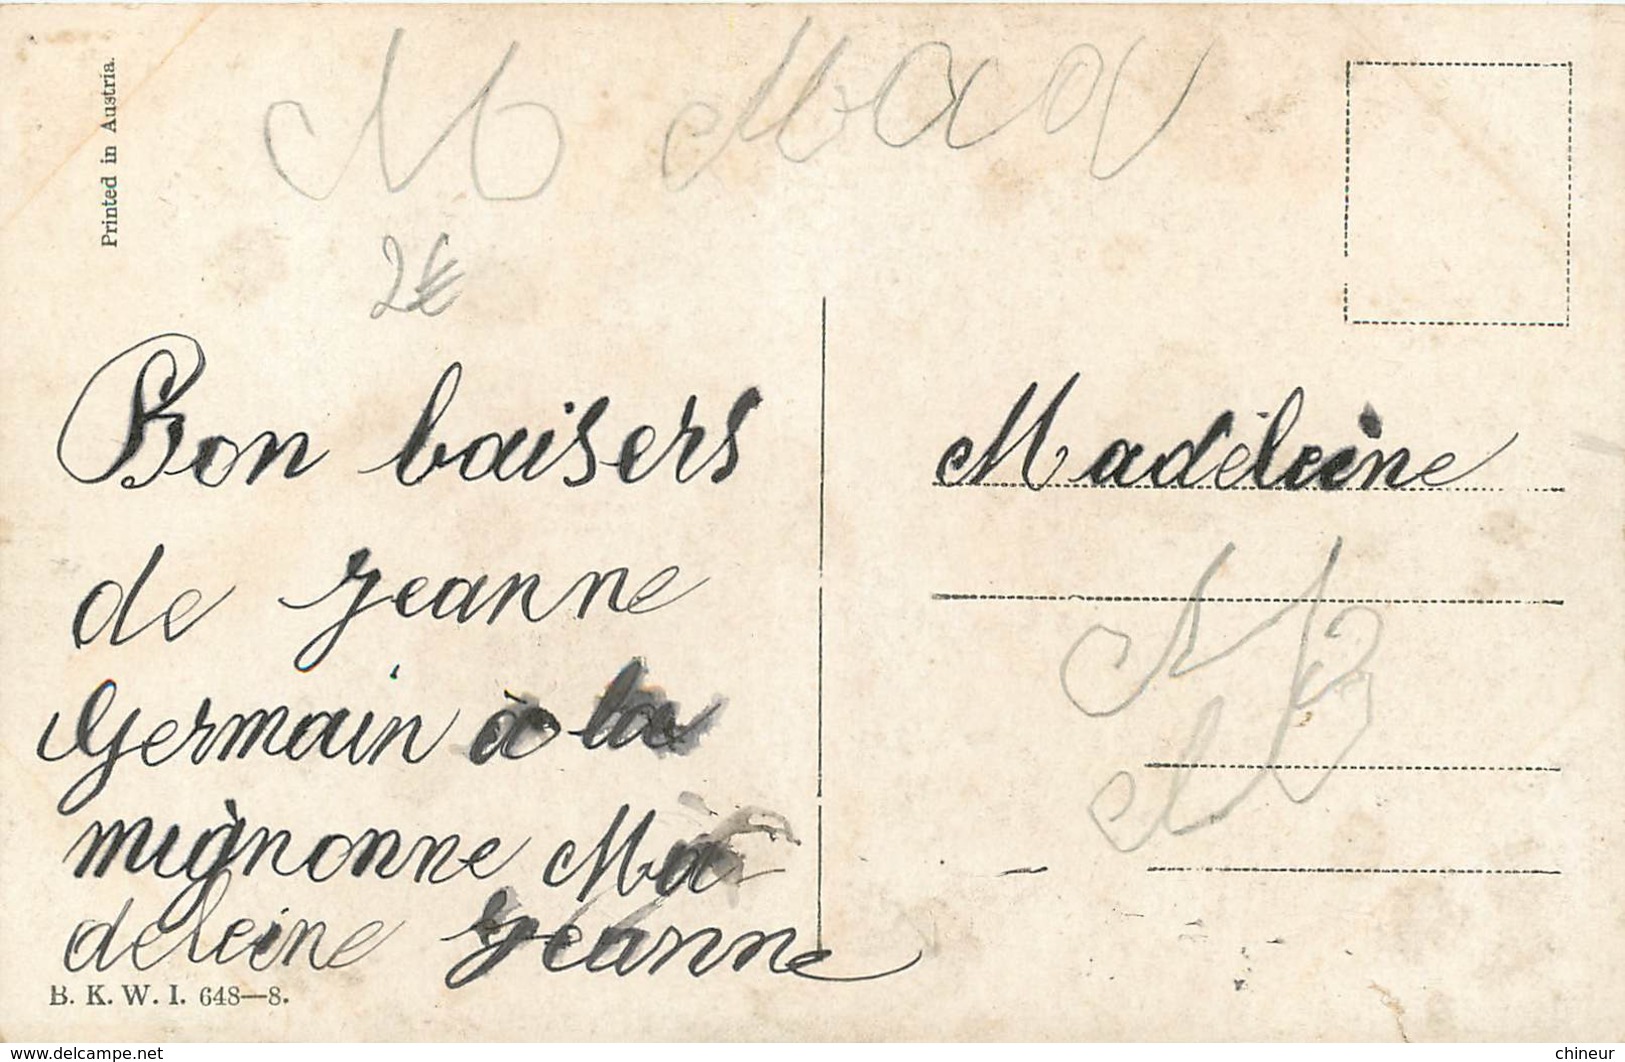 Printed in Austria.
M Mad
2€
Bon baisers
de Jeanne
Germain à la
mignonne Ma
deleine Jeanne
B. K. W. I. 648—8.
Madéleine
M
www.delcampe.net
chineur